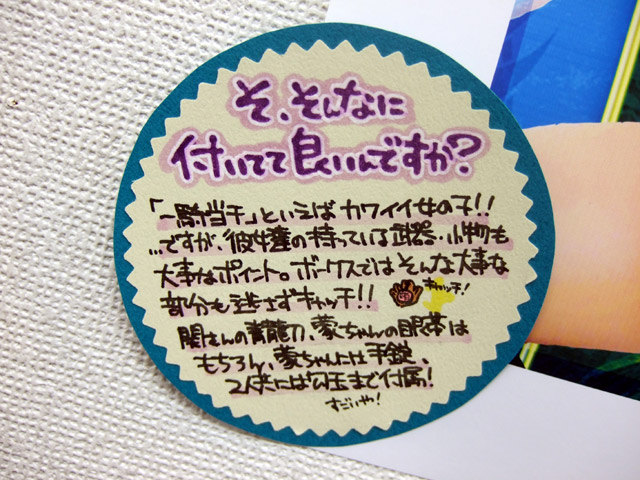 そ、そんなに
付いてて良いんですか?
「一騎当千」といえばカワイイ女の子!!
…ですが、彼女達の持っている武器・小物も
大事なポイント。ボークスではそんな大事な
部分も逃さずキャッチ!!
キャッチ!
関さんの青龍刀、蒙ちゃんの眼帯は
もちろん、蒙ちゃんには手錠、
2人共には勾玉まで付属!
すごいや!